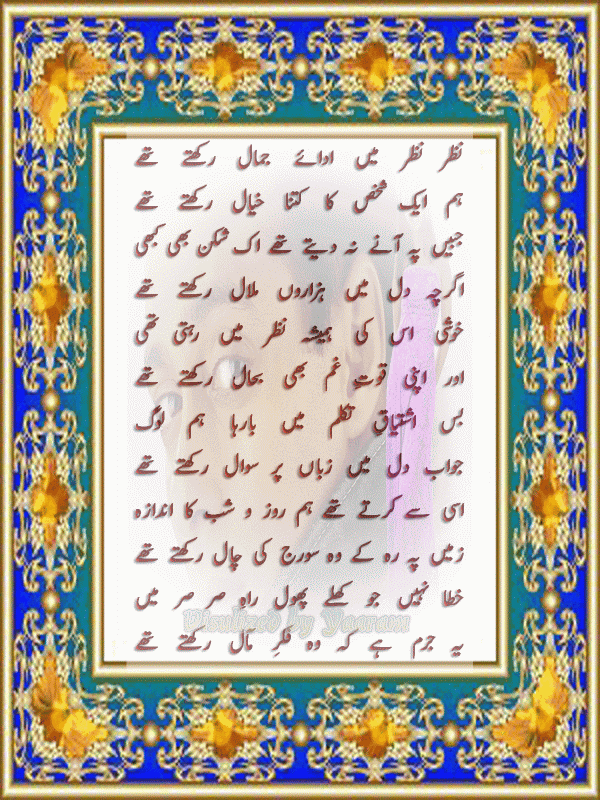 نظر نظر میں ادائے جمال رکھتے تھے
ہم ایک شخص کا کتنا خیال رکھتے تھے
جبیں پہ آنے نہ دیتے تھے اک شکن بھی کبھی
اگرچہ دل میں ہزاروں ملال رکھتے تھے
خوشی اس کی ہمیشہ نظر میں رہتی تھی
اور اپنی قوتِ غم بھی بحال رکھتے تھے
بس اشتیاقِ تکلم میں بارہا ہم لوگ
جواب دل میں زباں پر سوال رکھتے تھے
اسی سے کرتے تھے ہم روز و شب کا اندازہ
زمیں پہ رہ کے وہ سورج کی چال رکھتے تھے
خطا نہیں جو کھلے پھول راہِ صر صر میں
Visulized by Yasram
یہ جرم ہے کہ وہ فکرِ مآل رکھتے تھے